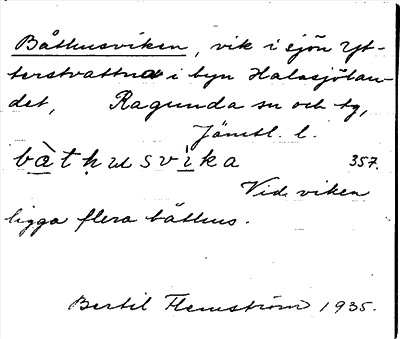 Båthusviken, vik i sjön Yt-
terstvattnet i byn Halasjölan-
det, Ragunda sn och tg,
Jämtl. l.
bàtḥusvìka 357.
Vid viken
ligga flera båthus.
Bertil Flemström 1935.